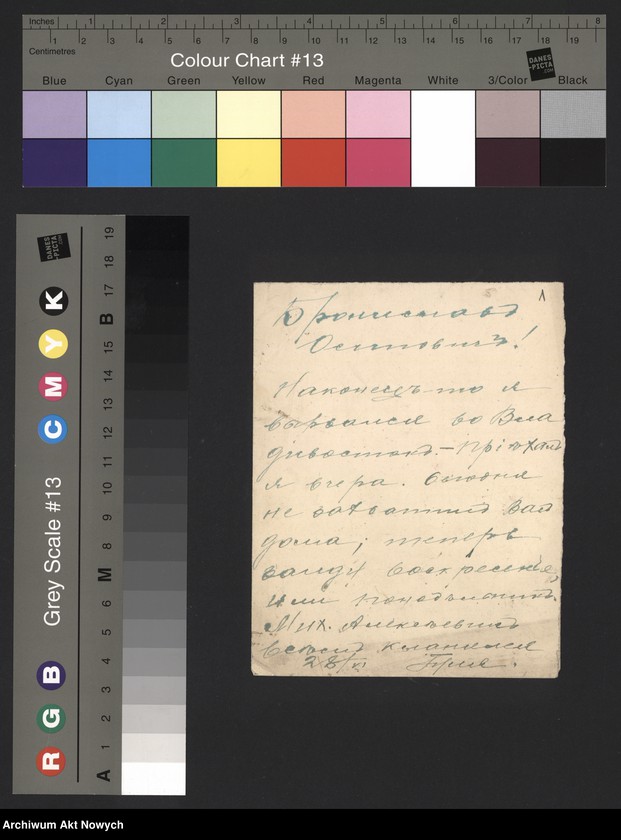 Inches 1 2 3 4 5 6 7 8
Centimetres 1 2 3 4 5 6 7 8 9 10 11 12 13 14 15 16 17 18 19
Colour Chart #13
DANES-PICTA.COM
Blue Cyan Green Yellow Red Magenta White 3/Color Black
Grey Scale #13
R G B C M Y K
A 1 2 3 4 5 6 M 8 9 10 11 12 13 14 15 B 17 18 19
DANES-PICTA.COM
1
Брониславъ
Осиповичъ!
Наконецъ-то я
вырвался во Вла
дивостокъ. – Пріѣхалъ
я вчера. Сегодня
не захватилъ Васъ
дома; теперь
зайду воскресенье,
или понедѣльникъ.
Мих. Алексѣевичъ
всѣмъ кланялся
28/VI
Archiwum Akt Nowych